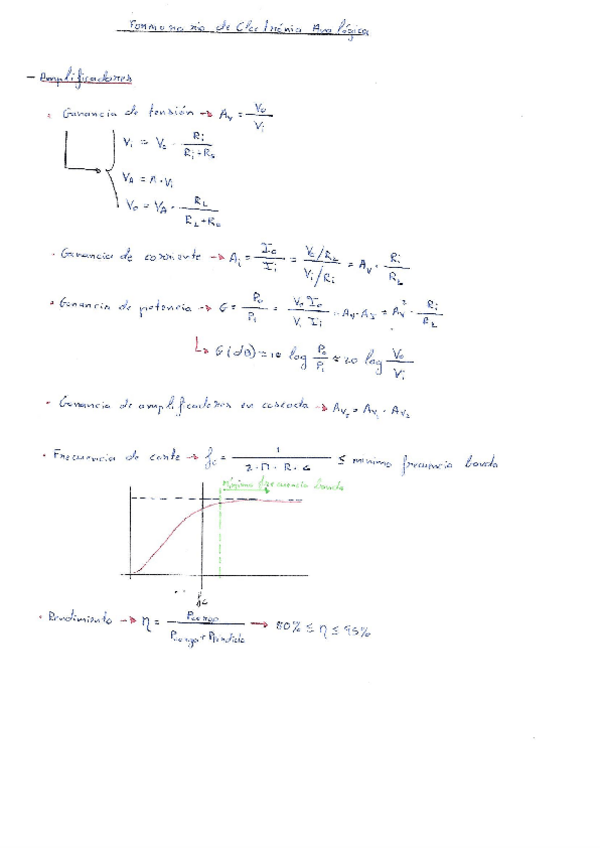 Formulario de Electrónica Analógica
- Amplificadores
• Ganancia de tensión → Av = Vo / Vi
Vi = Vs · Ri / (Ri + Rs)
VA = A · Vi
Vo = VA · RL / (RL + Ro)
• Ganancia de corriente → Ai = Io / Ii = (Vo/RL) / (Vi/Ri) = Av · Ri / RL
• Ganancia de potencia → G = Po / Pi = Vo Io / Vi Ii = Av · AI = Av² · Ri / RL
↳ G(dB) = 10 log Po / Pi = 20 log Vo / Vi
• Ganancia de amplificadores en cascada → Av = Av1 · Av2
• Frecuencia de corte → fc = 1 / (2 · Π · R · C) ≤ mínimo frecuencia banda
Mínimo frecuencia banda
fc
• Rendimiento → η = Pcarga / (Pcarga + Pperdida) → 80% ≤ η ≤ 95%